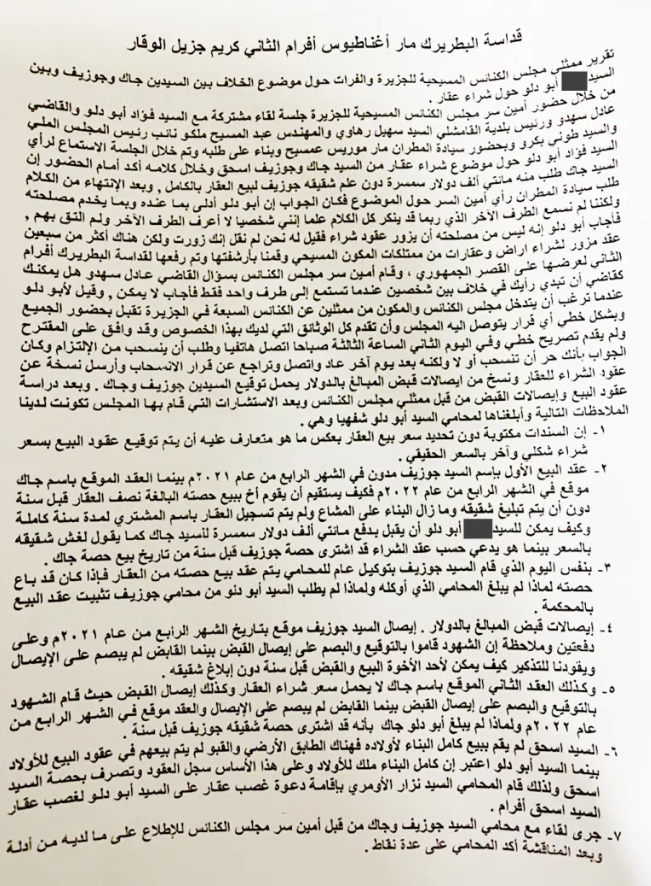 قداسة البطريرك مار أغناطيوس أفرام الثاني كريم جزيل الوقار
تقرير ممثلي مجلس الكنائس المسيحية للجزيرة والفرات حول موضوع الخلاف بين السيدين جاك وجوزيف وبين
السيد أبو دلو حول شراء عقار .
من خلال حضور أمين سر مجلس الكنائس المسيحية للجزيرة جلسة لقاء مشتركة مع السيد فؤاد أبو دلو والقاضي
عادل سهدو ورئيس بلدية القامشلي السيد سهيل رهاوي والمهندس عبد المسيح ملكو نائب رئيس المجلس الملي
والسيد طوني بكرو وبحضور سيادة المطران مار موريس عمسيح وبناء على طلبه وتم خلال الجلسة الاستماع لرأي
السيد فؤاد أبو دلو حول موضوع شراء عقار من السيد جاك وجوزيف اسحق وخلال كلامه أكد أمام الحضور إن
السيد جاك طلب منه مائتي ألف دولار سمسرة دون علم شقيقه جوزيف لبيع العقار بالكامل , وبعد الإنتهاء من الكلام
طلب سيادة المطران رأي أمين السر حول الموضوع فكان الجواب إن أبو دلو أدلى بما عنده وبما يخدم مصلحته
ولكننا لم نسمع الطرف الآخر الذي ربما قد ينكر كل الكلام علما إنني شخصيا لا أعرف الطرف الآخر ولم التق بهم ,
فأجاب أبو دلو إنه ليس من مصلحته أن يزور عقود شراء فقيل له نحن لم نقل إنك زورت ولكن هناك أكثر من سبعين
عقد مزور لشراء اراض وعقارات من ممتلكات المكون المسيحي وقمنا بأرشفتها وتم رفعها لقداسة البطريرك أفرام
الثاني لعرضها على القصر الجمهوري , وقام أمين سر مجلس الكنائس بسؤال القاضي عادل سهدو هل يمكنك
كقاضي أن تبدي رأيك في خلاف بين شخصين عندما تستمع إلى طرف واحد فقط فأجاب لا يمكن , وقيل لأبو دلو
عندما ترغب أن يتدخل مجلس الكنائس والمكون من ممثلين عن الكنائس السبعة في الجزيرة تقبل بحضور الجميع
وبشكل خطي أي قرار يتوصل اليه المجلس وأن تقدم كل الوثائق التي لديك بهذا الخصوص وقد وافق على المقترح
ولم يقدم تصريح خطي وفي اليوم الثاني الساعة الثالثة صباحا اتصل هاتفيا وطلب أن ينسحب من الإلتزام وكان
الجواب بأنك حر أن تنسحب أو لا ولكنه بعد يوم آخر عاد واتصل وتراجع عن قرار الانسحاب وأرسل نسخة عن
عقود الشراء للعقار ونسخ من ايصالات قبض المبالغ بالدولار يحمل توقيع السيدين جوزيف وجاك . وبعد دراسة
عقود البيع وإيصالات القبض من قبل ممثلي مجلس الكنائس وبعد الاستشارات التي قام بها المجلس تكونت لدينا
الملاحظات التالية وأبلغناها لمحامي السيد أبو دلو شفهيا وهي .
١- إن السندات مكتوبة دون تحديد سعر بيع العقار بعكس ما هو متعارف عليه أن يتم توقيع عقود البيع بسعر
شراء شكلي وآخر بالسعر الحقيقي .
٢- عقد البيع الأول بإسم السيد جوزيف مدون في الشهر الرابع من عام ٢٠٢١م بينما العقد الموقع باسم جاك
موقع في الشهر الرابع من عام ٢٠٢٢م فكيف يستقيم أن يقوم أخ ببيع حصته البالغة نصف العقار قبل سنة
دون أن يتم تبليغ شقيقه وما زال البناء على المشاع ولم يتم تسجيل العقار باسم المشتري لمدة سنة كاملة
وكيف يمكن للسيد أبو دلو أن يقبل بدفع مائتي ألف دولار سمسرة لأسيد جاك كما يقول لغش شقيقه
بالسعر بينما هو يدعي حسب عقد الشراء قد اشترى حصة جوزيف قبل سنة من تاريخ بيع حصة جاك .
٣- بنفس اليوم الذي قام السيد جوزيف بتوكيل عام للمحامي يتم عقد بيع حصته من العقار فإذا كان قد باع
حصته لماذا لم يبلغ المحامي الذي أوكله ولماذا لم يطلب السيد أبو دلو من محامي جوزيف تثبيت عقد البيع
بالمحكمة .
٤- إيصالات قبض المبالغ بالدولار . إيصال السيد جوزيف موقع بتاريخ الشهر الرابع من عام ٢٠٢١م وعلى
دفعتين وملاحظة إن الشهود قاموا بالتوقيع والبصم على إيصال القبض بينما القابض لم يبصم على الإيصال
ويقودنا للتذكير كيف يمكن لأحد الأخوة البيع والقبض قبل سنة دون إبلاغ شقيقه .
٥- وكذلك العقد الثاني الموقع باسم جاك لا يحمل سعر شراء العقار وكذلك إيصال القبض حيث قام الشهود
بالتوقيع والبصم على إيصال القبض بينما القابض لم يبصم على الإيصال والعقد موقع في الشهر الرابع من
عام ٢٠٢٢م ولماذا لم يبلغ أبو دلو جاك بأنه قد اشترى حصة شقيقه جوزيف قبل سنة .
٦- السيد اسحق لم يقم ببيع كامل البناء لأولاده فهناك الطابق الأرضي والقبو لم يتم بيعهم في عقود البيع للأولاد
بينما السيد أبو دلو اعتبر إن كامل البناء ملك للأولاد وعلى هذا الأساس سجل العقود وتصرف بحصة السيد
اسحق ولذلك قام المحامي السيد نزار الأومري بإقامة دعوة غصب عقار على السيد أبو دلو لغصب عقار
السيد اسحق أفرام .
٧- جرى لقاء مع محامي السيد جوزيف وجاك من قبل أمين سر مجلس الكنائس للإطلاع على ما لديه من أدلة
وبعد المناقشة أكد المحامي على عدة نقاط .